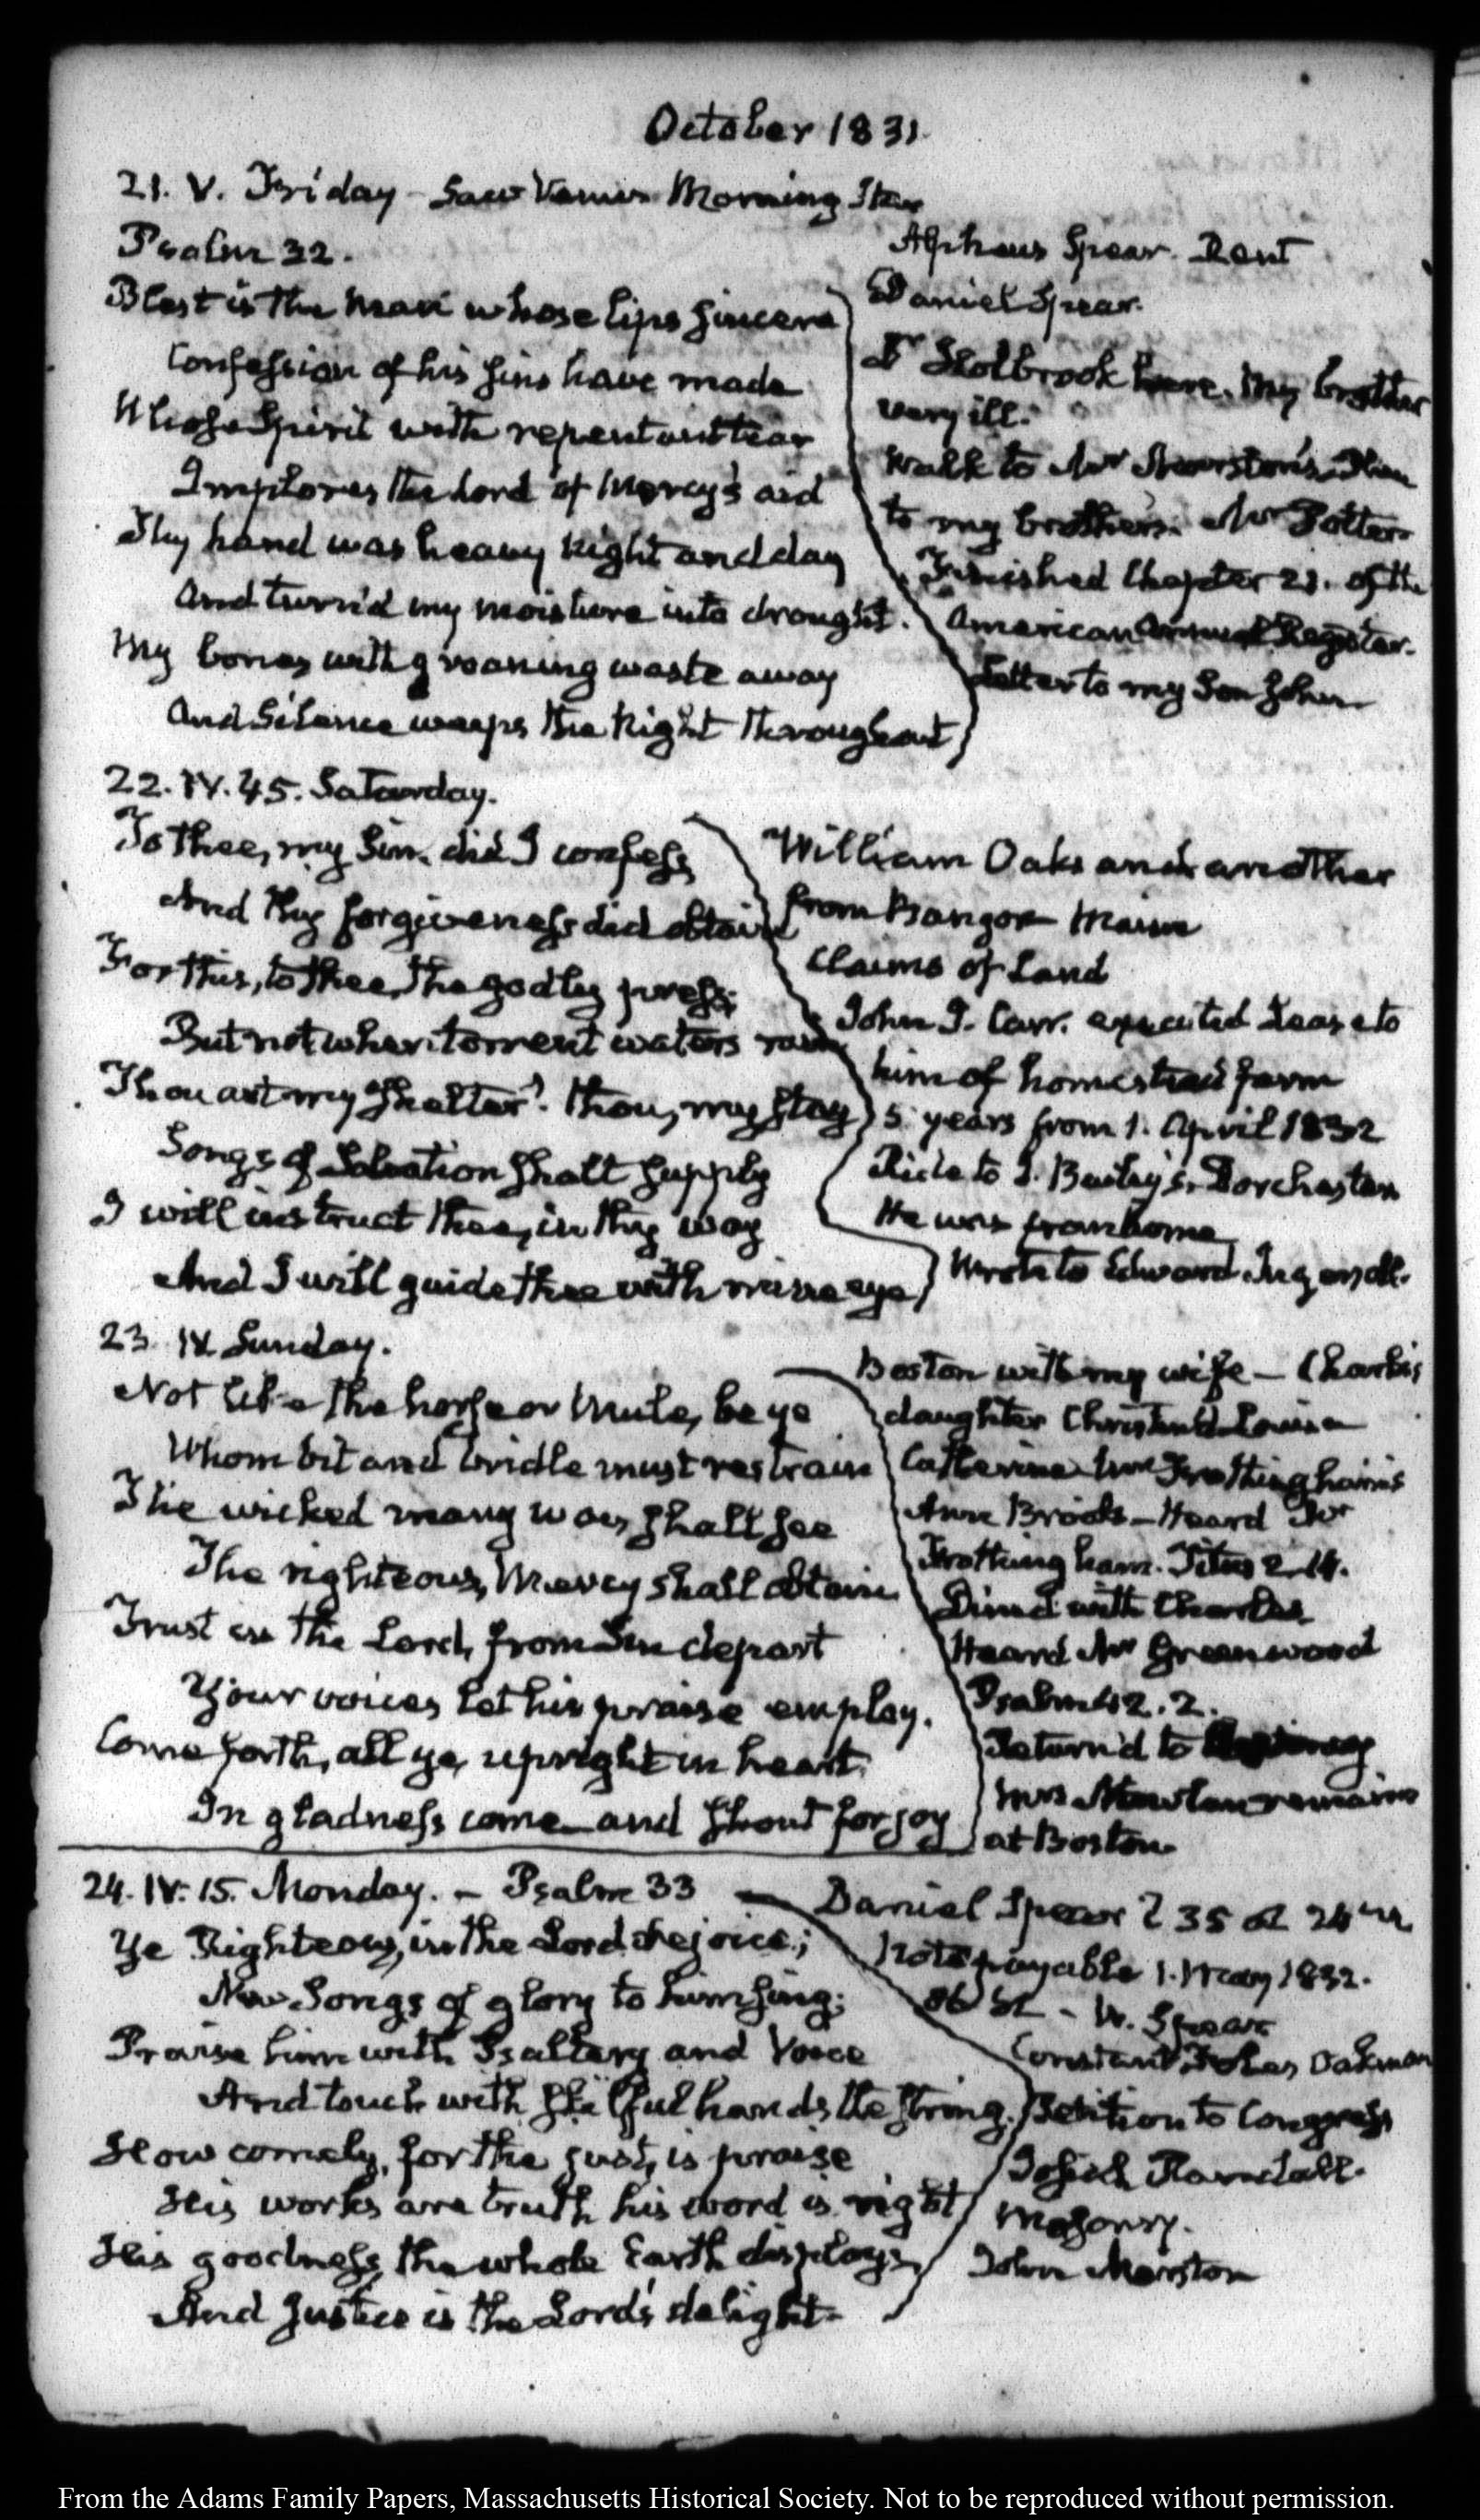 October 1831
21. V. Friday - Saw Venus Morning Star
Psalm 32.
Blest is the Man whose lips sincere
Confession of his sins have made
Whose Spirit with repentant tear
Implores the Lord of Mercy's aid
Thy hand was heavy Night and day
And turn'd my moisture into drought.
My bones with groaning waste away
And Silence weeps the Night throughout
Alpheus Spear. Rent
Daniel Spear.
Dr Holbrook here. My brother
very ill.
Walk to Mr
to my brothers. Mr Potter
Finished Chapter 21. of the
American Annual Register.
Letter to my Son John
22. IV. 45. Saturday.
To thee, my Sin did I confess
And thy forgiveness did obtain
For this, to thee, the godly press;
But not when torrent waters
Thou art my Shelter. Thou, my Stay
Songs of Salvation shalt supply
I will instruct thee, in thy way
And I will guide thee with mine eye
William Oaks and another
from Bangor Maine
Claims of Land
John J. Carr. executed Lease to
him of homestead farm
5 years from 1. April 1832
Ride to J. Bailey's. Dorchester
He was from home
Wrote to Edward Ingersoll.
23. IV Sunday.
Not like the horse or Mule, be ye
Whom bit and bridle must restrain
The wicked many woes shall see
The righteous, Mercy shall obtain
Trust in the Lord, from Sin depart
Your voices let his praise employ.
Come forth, all ye, upright in heart
In gladness come and shout for joy
Boston with my wife - Charles's
daughter Christen'd Louisa
Catherine Mr Frothingham's
Ann Brooks - Heard Mr
Frothingham. Titus 2.14.
Dined with Charles
Heard Mr Greenwood
Psalm 42. 2.
Return'd to
Mrs remains
at Boston
24. IV. 15. Monday. - Psalm 33
Ye Righteous, in the Lord rejoice;
New Songs of glory to him sing;
Praise him with Psaltery and Voice
And touch with skilful hands the string.
How comely, for the just, is praise
His works are truth his word is right
His goodness, the whole Earth displays
And Justice is the Lord's delight.
Daniel Spear 35
Note payable 1. May 1832.
W. Spear
Constant Oakman
Petition to Congress
Josiah Randall.
Masonry.
John Marston
From the Adams Family Papers, Massachusetts Historical Society. Not to be reproduced without permission.